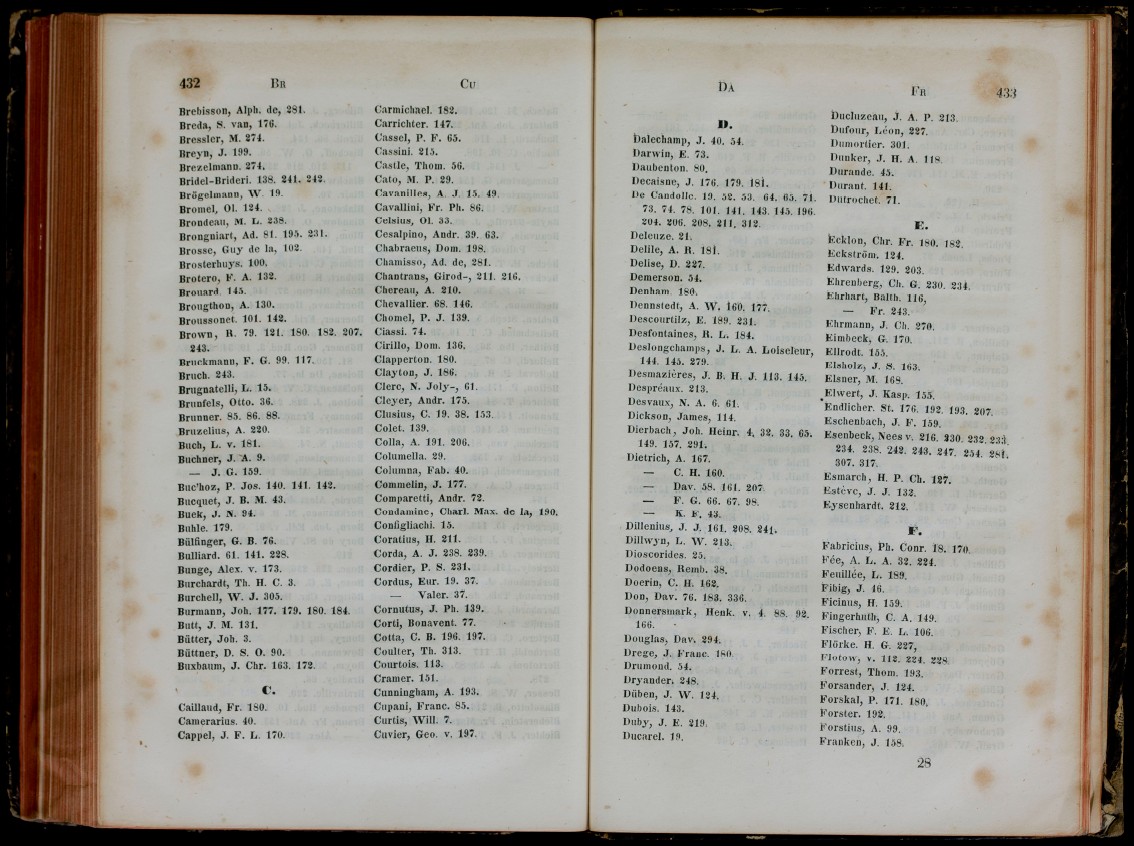 432
Br
Cu
Brebisson, Alph. de, 281.
Breda, S. van, 176.
Bressler, M. 274.
Breyn, J. 199.
Brezelmann. 274.
Bridel-Brideri. 138. 241. 242.
Brögelmann, W. 19.
Bromel, Ol. 124.
Brondeau, M. L. 238.
Brongniart, Ad. 81. 195. 231.
Brosse, Guy de la, 102.
Brosterhuys. 100.
Brotero, F. A. 132.
Brouard. 145.
Brougthon, A. 130.
Broussonet. 101. 142.
Brown, R. 79. 121. 180. 182. 207.
243.
Bruckmann, F. G. 99. 117.
Bruch. 243.
Brugnatelli, L. 15.
Brunfels, Otto. 36.
Brunner. 85. 86. 88.
Bruzelius, A. 220.
Buch, L. v. 181.
Buchner, J. A. 9.
— J. G. 159.
Buc'hoz, P. Jos. 140. 141. 142.
Bucquet, J. B. M. 43.
Buek, J. N. 94.
Buhle. 179.
Bülfinger, G. B. 76.
Bulliard. 61. 141. 228.
Bunge, Alex. v. 173.
Burchardt, Th. H. C. 3.
Burchell, W. J. 305.
Burmann, Joh. 177. 179. 180. 184.
Butt, J. M. 131.
Bütter, Joh. 3.
Büttner, D. S. O. 90.
Buxbaum, J. Chr. 163. 172.
C.
Caillaud, Fr. 180.
Camerarius. 40.
Cappel, J. F. L. 170.
Carmichael. 182.
Carrichter. 147.
Cassel, P. F. 65.
Cassini. 215.
Castle, Thom. 56.
Cato, M. P. 29.
Cavanilles, A. J. 15. 49.
Cavallini, Fr. Ph. 86.
Celsius, Ol. 33.
Cesalpino, Andr. 39. 63.
Chabraeus, Dom. 198.
Chamisso, Ad. de, 281.
Chantrans, Girod-, 211. 216.
Chereau, A. 210.
Chevallier. 68. 146.
Chomel, P. J. 139.
Ciassi. 74.
Cirillo, Dom. 136.
Clapperton. 180.
Clayton, J. 186.
Clerc, N. Joly-, 61.
Cleyer, Andr. 175.
Clusius, C. 19. 38. 153.
Colet. 139.
Colla, A. 191. 206.
Columella. 29.
Columna, Fab. 40.
Commelin, J. 177.
Comparetti, Andr. 72.
Condamine, Charl. Max. de la, 190.
Configliachi. 15.
Coratius, H. 211.
Corda, A. J. 238. 239.
Cordier, P. S. 231.
Cordus, Eur. 19. 37.
— Valer. 37.
Cornutus, J. Ph. 139.
Corti, Bonavent. 77.
Cotta, C. B. 196. 197.
Coulter, Th. 313.
Courtois. 113.
Cramer. 151.
Cunningham, A. 193.
Cupani, Franc. 85.
Curtis, Will. 7.
Cuvier, Geo. v. 197.
Da
Fr
433
D.
Dalechamp, J. 40. 54.
Darwin, E. 73.
Daubenton. 80.
Decaisne, J. 176. 179. 181.
De Candolle. 19. 52. 53. 64. 65. 71.
73. 74. 78. 101. 141. 143. 145. 196.
204. 206. 208. 211. 312.
Deleuze. 21.
Delile, A. R. 181.
Delise, D. 227.
Demerson. 54.
Denham. 180.
Dennstedt, A. W. 160. 177.
Descourtilz, E. 189. 231.
Desfontaines, R. L. 184.
Deslongchamps, J. L. A. Loiseleur,
144. 145. 279.
Desmazières, J. B. H. J. 113. 145.
Despréaux. 213.
Desvaux, N. A. 6. 61.
Dickson, James, 114.
Dierbach, Joh. Heinr. 4. 32. 33. 65.
149. 157. 291.
Dietrich, A. 167.
— C. H. 160.
— Dav. 58. 161. 207.
— F. G. 66. 67. 98.
— K. F. 43.
Dillenius, J. J. 161. 208. 241.
Dillwyn, L. W. 213.
Dioscorides. 25.
Dodoens, Remb. 38.
Doerin, C. H. 162.
Don, Dav. 76. 183. 336.
Donnersmark, Henk. v. 4. 88. 92.
166.
Douglas, Dav. 294.
Drege, J. Franc. 180.
Drumond. 54.
Dryander. 248.
Düben, J. W. 124.
Dubois. 143.
Duby, J. E. 219.
Ducarel. 19.
Ducluzeau, J. A. P. 213.
Dufour, Léon, 227.
Dumortier. 301.
Dunker, J. H. A. 118.
Durande. 45.
Durant. 141.
Dutrochet. 71.
E.
Ecklon, Chr. Fr. 180. 182.
Eckström. 124.
Edwards. 129. 203.
Ehrenberg, Ch. G. 230. 234.
Ehrhart, Balth. 116,
— Fr. 243.
Ehrmann, J. Ch. 270.
Eimbeck, G. 170.
Ellrodt. 155.
Elsholz, J. S. 163.
Elsner, M. 168.
Elwert, J. Kasp. 155.
Endlicher. St. 176. 192. 193. 207.
Eschenbach, J. F. 159.
Esenbeck, Nees v. 216. 230. 232. 233.
234. 238. 242. 243. 247. 254. 281.
307. 317.
Esmarch, H. P. Ch. 127.
Estève, J. J. 132.
Eysenhardt. 212.
F.
Fabricius, Ph. Conr. 18. 170.
Fée, A. L. A. 32. 224.
Feuillée, L. 189.
Fibig, J. 16.
Ficinus, H. 159.
Fingerhuth, C. A. 149.
Fischer, F. E. L. 106.
Flörke. H. G. 227.
Flotow, v. 112. 224. 228.
Forrest, Thom. 193.
Forsander, J. 124.
Forskal, P. 171. 180.
Forster. 192.
Forstius, A. 99.
Franken, J. 158.
28